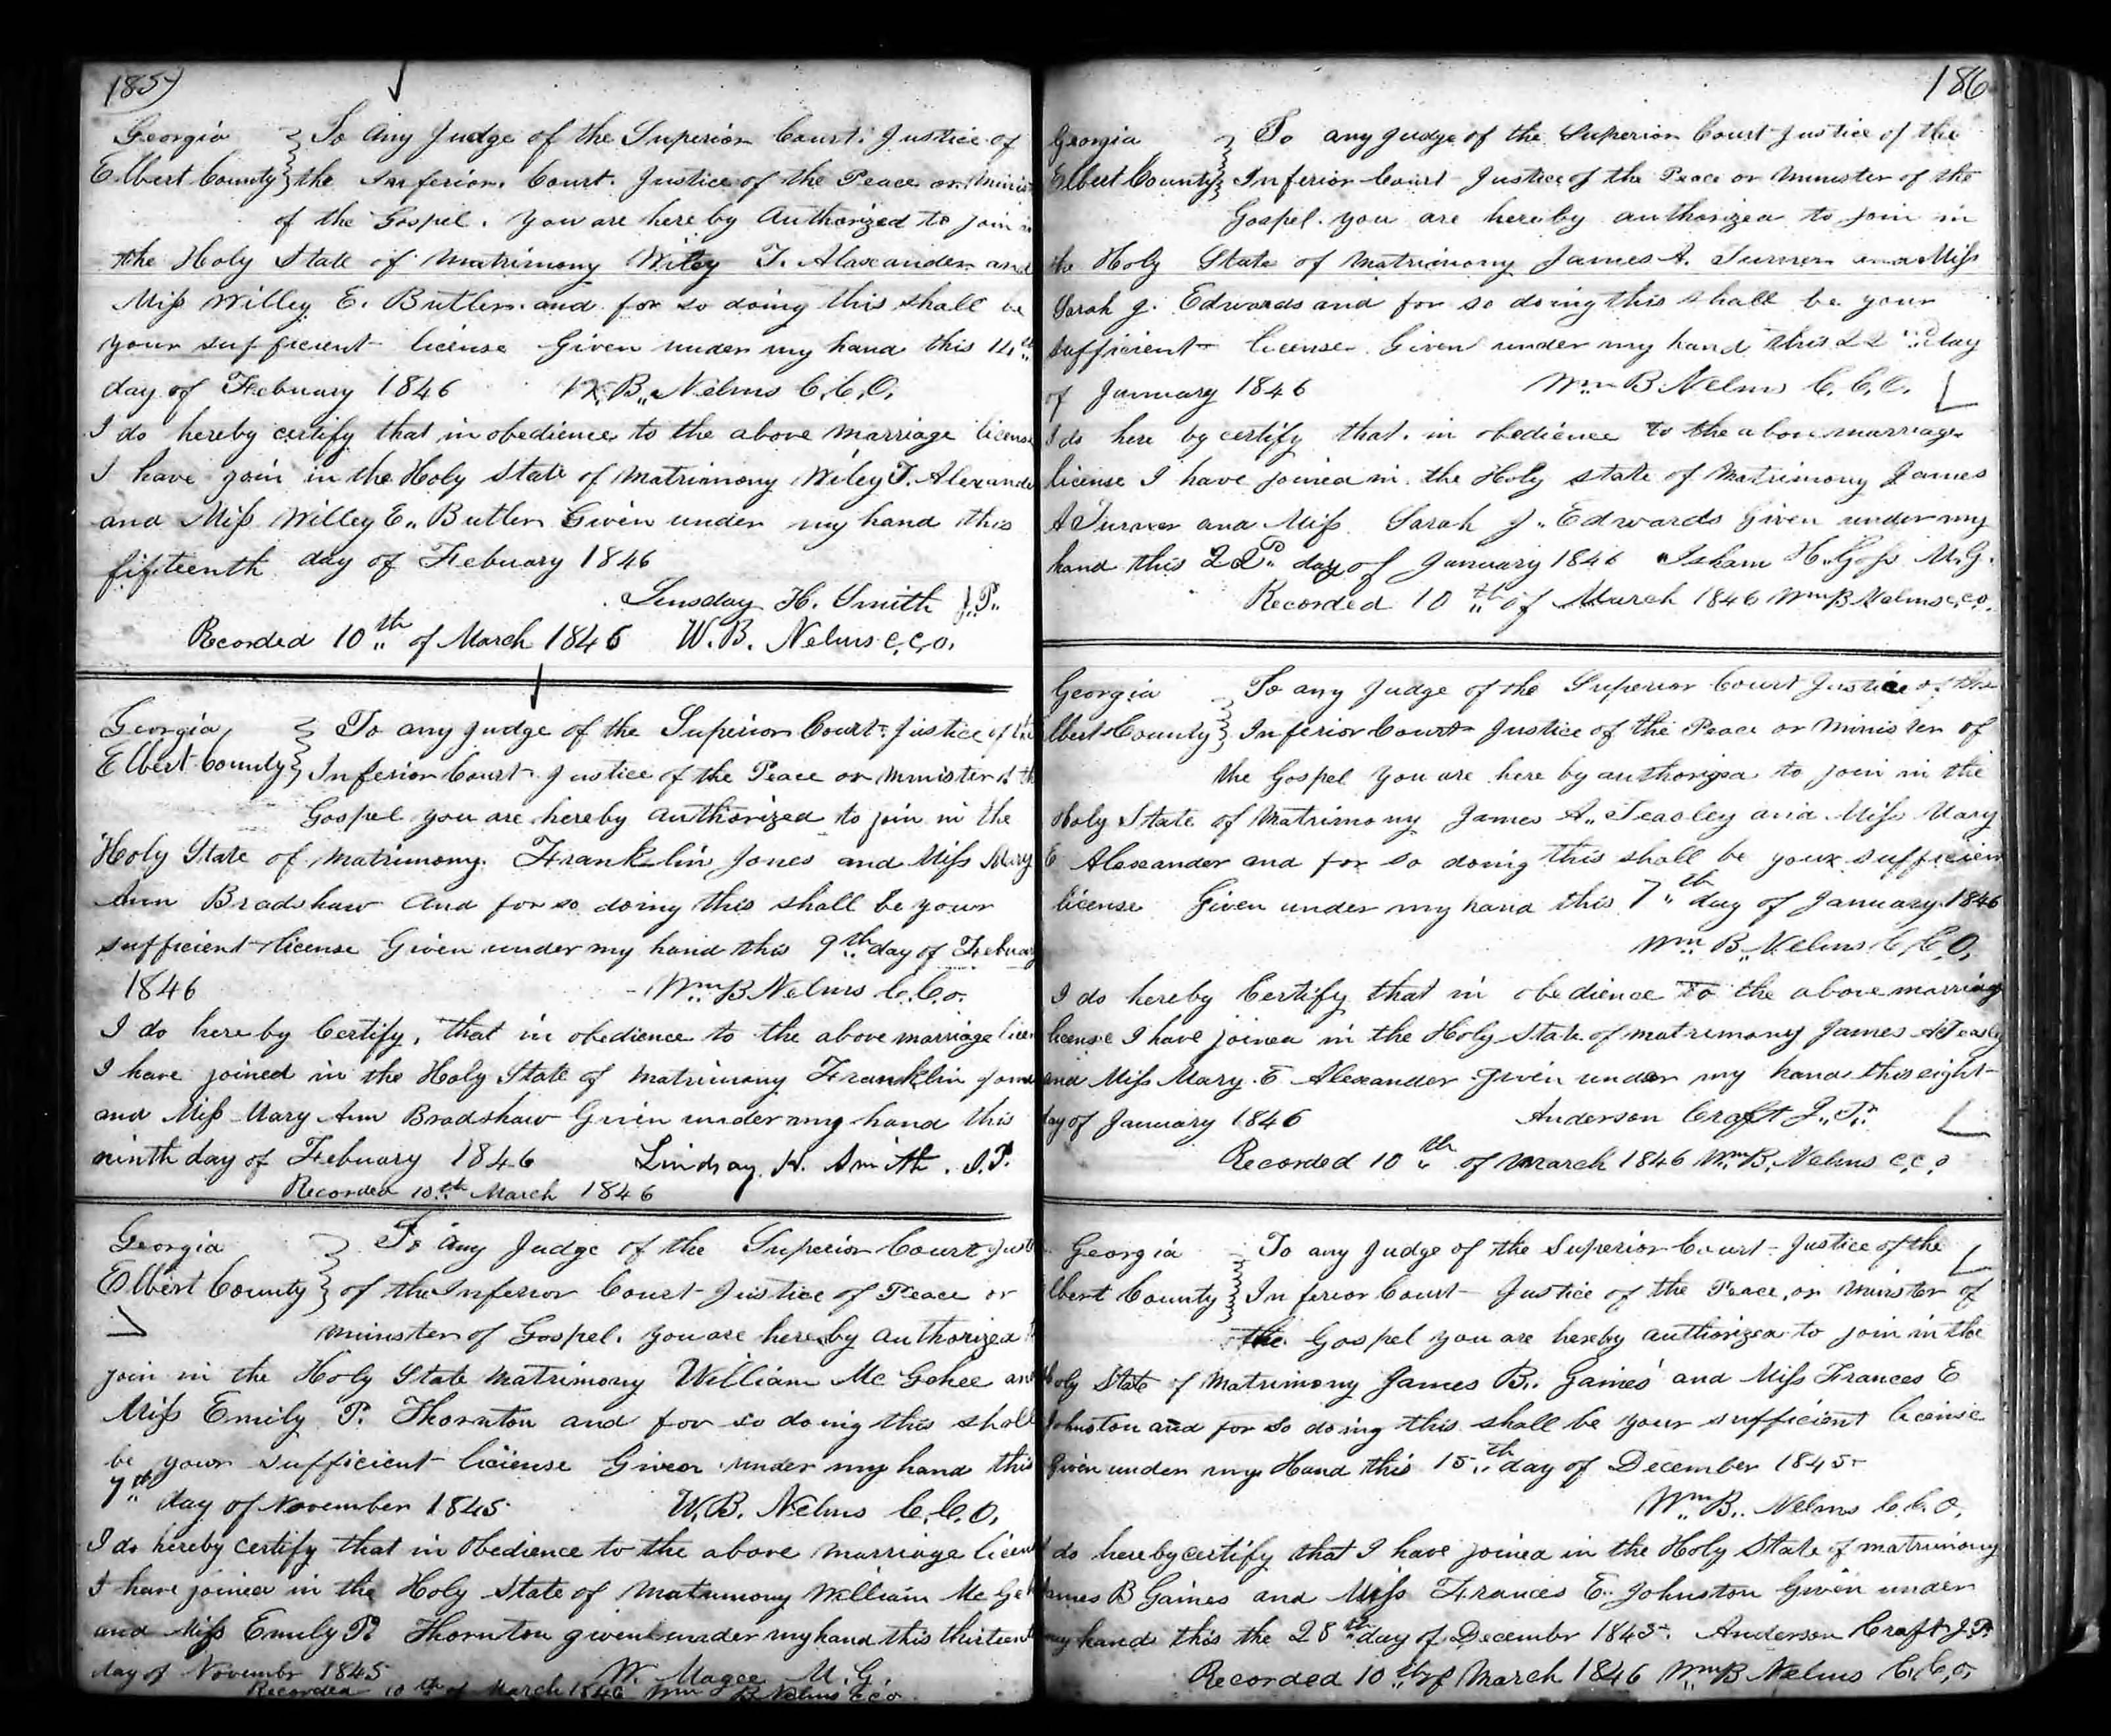 185
Georgia } To any Judge of the Superior Court. Justice of
Elbert County } the Inferior. Court. Justice of the Peace or Minis
of the Gospel. You are here by Authorized to join
the Holy State of Matrimony Wiley T. Alaxander and
Miss Willey E. Butler. and for so doing this shall be
your sufficient license Given under my hand this 14th
day of Febuary 1846 W. B. Nelms C.C.O.
I do hereby certify that in obedience to the above marriage license
I have join in the Holy State of Matrimony Wiley T. Alexande
and Miss Willey E. Butler Given under my hand this
fifteenth day of Febuary 1846
Linsday H. Smith J.P.
Recorded 10th of March 1846 W. B. Nelms C.C.O.
Georgia } To any Judge of the Superior Court Justice of the
Elbert County } Inferior Court. Justice of the Peace or Minister of th
Gospel you are hereby authorized to join in the
Holy State of Matrimony. Franklin Jones and Miss Mary
Ann Bradshaw And for so doing this shall be your
sufficient license Given under my hand this 9th day of Febuary
1846 Wm B Nelms C.C.O.
I do here by Certify, that in obedience to the above marriage licen
I have joined in the Holy State of Matrimony Franklin Jone
and Miss Mary Ann Bradshaw Given under my hand this
ninth day of Febuary 1846 Lindsay H. Smith. J.P.
Recorded 10th March 1846
Georgia } To any Judge of the Superior Court Just
Elbert County } of the Inferior Court Justice of Peace or
Minister of Gospel. You are hereby authorized
join in the Holy State Matrimony William Mc Gehee and
Miss Emily P. Thornton and for so doing this shall
be your sufficient license Given under my hand this
7th day of November 1845 W. B. Nelms C.C.O.
I do hereby certify that in Obedience to the above Marriage licen
I have joined in the Holy State of Matrimony William Mc Geh
and Miss Emily P. Thornton given under my hand this thirteen
day of November 1845 W. Magee M.G.
Recorded 10th of March 1846 Wm B Nelms CCO
186
Georgia } To any Judge of the Superior Court Justice of the
Elbert County } Inferior Court Justice of the Peace or Minister of the
Gospel. you are hereby authorized to join in
the Holy State of Matrimony James A. Turner and Miss
Sarah J. Edwards and for so doing this shall be your
sufficient license. Given under my hand this 22nd day
of January 1846 Wm B Nelms C.C.O.
I do here by certify that. in obedience to the above marriage
license I have joined in. the Holy state of Matrimony James
A Turner and Miss Sarah J. Edwards Given under my
hand this 22d day of January 1846 Isham H. Goss M.G.
Recorded 10th of March 1846 Wm B Nelms C.C.O.
Georgia } To any Judge of the Superior Court Justice of the
lbert County } Inferior Court Justice of the Peace or Minister of
the Gospel You are here by authorized to join in the
Holy State of Matrimony James A. Teasley and Miss Mary
E Alexander and for so doing this shall be your sufficien
license Given under my hand this 7th day of January 1846
Wm B. Nelms C.C.O.
I do hereby Certify that in obedience to the above marriag
license I have joined in the Holy State of matrimony James A Teasley
and Miss Mary E Alexander given under my hand this eight
day of January 1846 Anderson Craft J.P.
Recorded 10th of March 1846 Wm B. Nelms C.C.O
Georgia } To any Judge of the Superior Court Justice of the
lbert County } Inferior Court Justice of the Peace, or Minister of
the Gospel you are hereby authorized to join in the
Holy State of Matrimony James B. Gaines and Miss Frances E
Johnston and for so doing this shall be your sufficient license
Given under my Hand this 15th day of December 1845
Wm B. Nelms C.C.O.
I do hereby certify that I have joined in the Holy State of matrimony
James B Gaines and Miss Frances E. Johnston Given under
my hands this the 28th day of December 1845. Anderson Craft J.P.
Recorded 10th of March 1846 Wm B Nelms C.C.O.